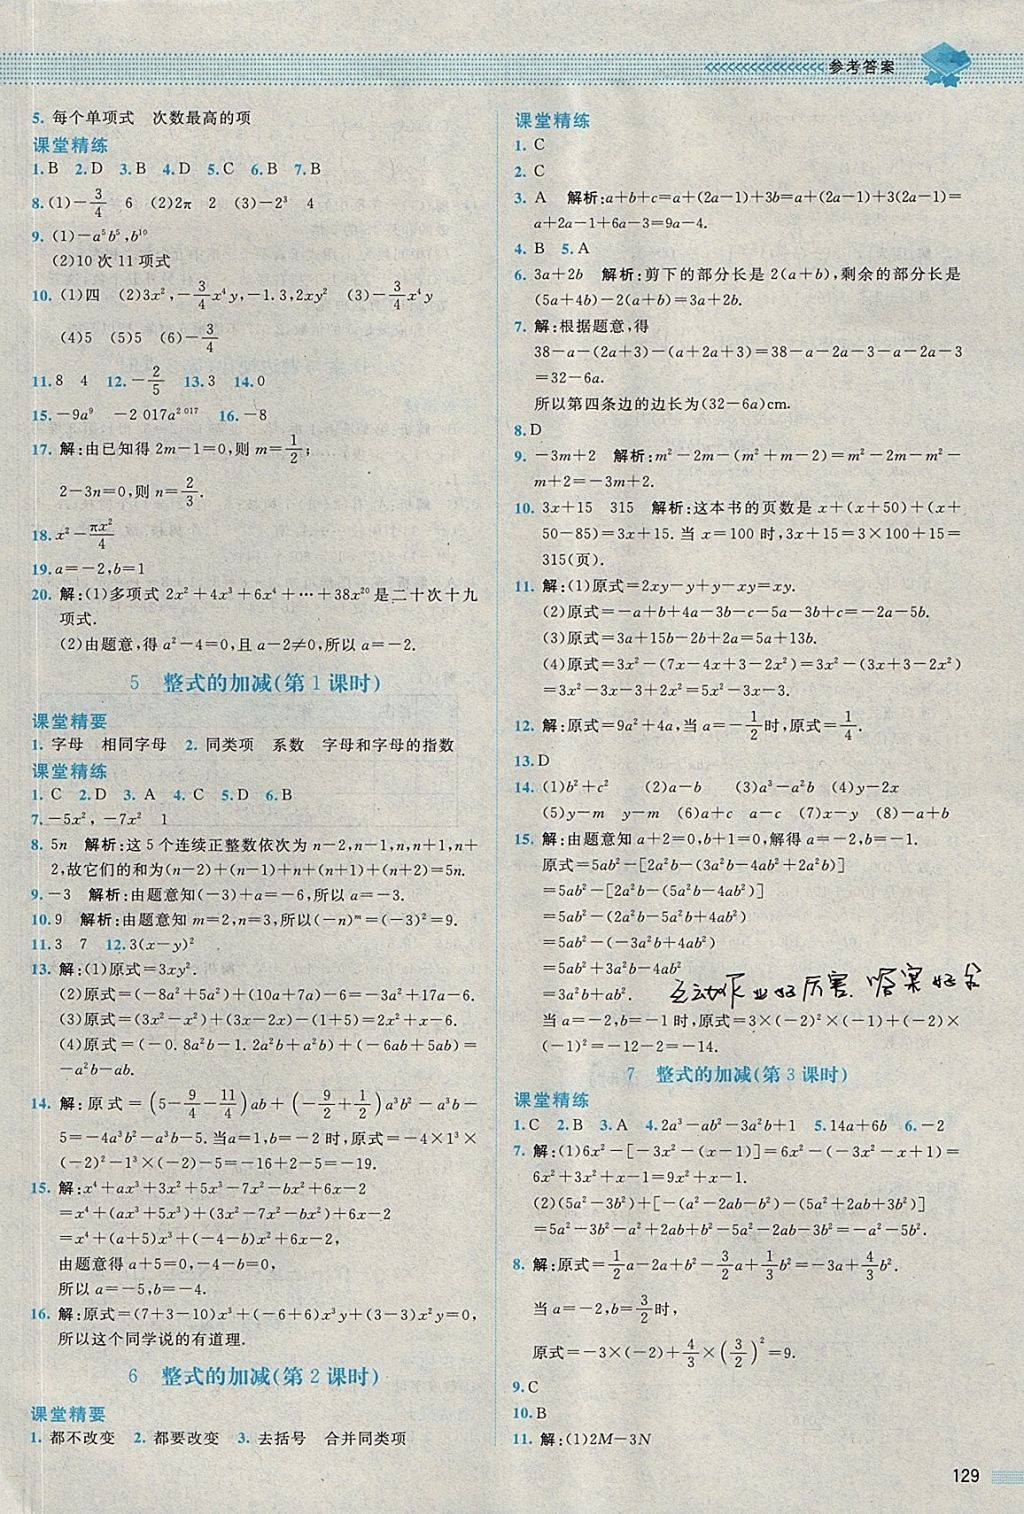 参考答案
5. 每个单项式 次数最高的项
课堂精练
1. B 2. D 3. B 4. D 5. C 6. B 7. B
8. (1)-3/4 6 (2)2π 2 (3)-2³ 4
9. (1)-a⁵b⁵,b¹⁰
(2)10次11项式
10. (1)四 (2)3x²,-3/4x⁴y,-1.3,2xy² (3)-3/4x⁴y
(4)5 (5)5 (6)-3/4
11. 8 4 12. -2/5 13. 3 14. 0
15. -9a⁹ -2 017a²⁰¹⁷ 16. -8
17. 解:由已知得2m-1=0,则m=1/2;
2-3n=0,则n=2/3.
18. x²-πx²/4
19. a=-2,b=1
20. 解:(1)多项式2x²+4x³+6x⁴+…+38x²⁰是二十次十九
项式.
(2)由题意,得a²-4=0,且a-2≠0,所以a=-2.
5 整式的加减(第1课时)
课堂精要
1. 字母 相同字母 2. 同类项 系数 字母和字母的指数
课堂精练
1. C 2. D 3. A 4. C 5. D 6. B
7. -5x²,-7x² 1
8. 5n 解析:这5个连续正整数依次为n-2,n-1,n,n+1,n+
2,故它们的和为(n-2)+(n-1)+n+(n+1)+(n+2)=5n.
9. -3 解析:由题意知(-3)+a=-6,所以a=-3.
10. 9 解析:由题意知m=2,n=3,所以(-n)ᵐ=(-3)²=9.
11. 3 7 12. 3(x-y)²
13. 解:(1)原式=3xy².
(2)原式=(-8a²+5a²)+(10a+7a)-6=-3a²+17a-6.
(3)原式=(3x²-x²)+(3x-2x)-(1+5)=2x²+x-6.
(4)原式=(-0.8a²b-1.2a²b+a²b)+(-6ab+5ab)=
-a²b-ab.
14. 解:原式=(5-9/4-11/4)ab+(-9/2+1/2)a³b²-a³b-
5=-4a³b²-a³b-5.当a=1,b=-2时,原式=-4×1³×
(-2)²-1³×(-2)-5=-16+2-5=-19.
15. 解:x⁴+ax³+3x²+5x³-7x²-bx²+6x-2
=x⁴+(ax³+5x³)+(3x²-7x²-bx²)+6x-2
=x⁴+(a+5)x³+(-4-b)x²+6x-2,
由题意得a+5=0,-4-b=0,
所以a=-5,b=-4.
16. 解:原式=(7+3-10)x³+(-6+6)x³y+(3-3)x²y=0,
所以这个同学说的有道理.
6 整式的加减(第2课时)
课堂精要
1. 都不改变 2. 都要改变 3. 去括号 合并同类项
课堂精练
1. C
2. C
3. A 解析:a+b+c=a+(2a-1)+3b=a+(2a-1)+3(2a-1)=
a+2a-1+6a-3=9a-4.
4. B 5. A
6. 3a+2b 解析:剪下的部分长是2(a+b),剩余的部分长是
(5a+4b)-2(a+b)=3a+2b.
7. 解:根据题意,得
38-a-(2a+3)-(a+2a+3)=38-a-2a-3-a-2a-3
=32-6a.
所以第四条边的边长为(32-6a)cm.
8. D
9. -3m+2 解析:m²-2m-(m²+m-2)=m²-2m-m²-
m+2=-3m+2.
10. 3x+15 315 解析:这本书的页数是x+(x+50)+(x+
50-85)=3x+15.当x=100时,3x+15=3×100+15=
315(页).
11. 解:(1)原式=2xy-y+y-xy=xy.
(2)原式=-a+b+4a-3b-c-5a-3b+c=-2a-5b.
(3)原式=3a+15b-2b+2a=5a+13b.
(4)原式=3x²-(7x-4x+3-2x²)=3x²-(3x+3-2x²)
=3x²-3x-3+2x²=5x²-3x-3.
12. 解:原式=9a²+4a,当a=-1/2时,原式=1/4.
13. D
14. (1)b²+c² (2)a-b (3)a³-a²b (4)y-2x
(5)y-m y-m (6)a+c a-c (7)x-y (8)-a+b
15. 解:由题意知a+2=0,b+1=0,解得a=-2,b=-1.
原式=5ab²-[2a²b-(3a²b-4ab²+2a²b)]
=5ab²-[2a²b-(5a²b-4ab²)]
=5ab²-(2a²b-5a²b+4ab²)
=5ab²-(-3a²b+4ab²)
=5ab²+3a²b-4ab²
=3a²b+ab².
互动作业好厉害、答案好全
当a=-2,b=-1时,原式=3×(-2)²×(-1)+(-2)×
(-1)²=-12-2=-14.
7 整式的加减(第3课时)
课堂精练
1. C 2. B 3. A 4. 2a³-ab²-3a²b+1 5. 14a+6b 6. -2
7. 解:(1)6x²-[-3x²-(x-1)]=6x²-(-3x²-x+1)=
6x²+3x²+x-1=9x²+x-1.
(2)(5a²-3b²)+[-(a²-2ab-b²)-(5a²+2ab+3b²)]
=5a²-3b²-a²+2ab+b²-5a²-2ab-3b²=-a²-5b².
8. 解:原式=1/2a-2a+b²-3/2a+1/3b²=-3a+4/3b².
当a=-2,b=3/2时,
原式=-3×(-2)+4/3×(3/2)²=9.
9. C
10. B
11. 解:(1)2M-3N
129